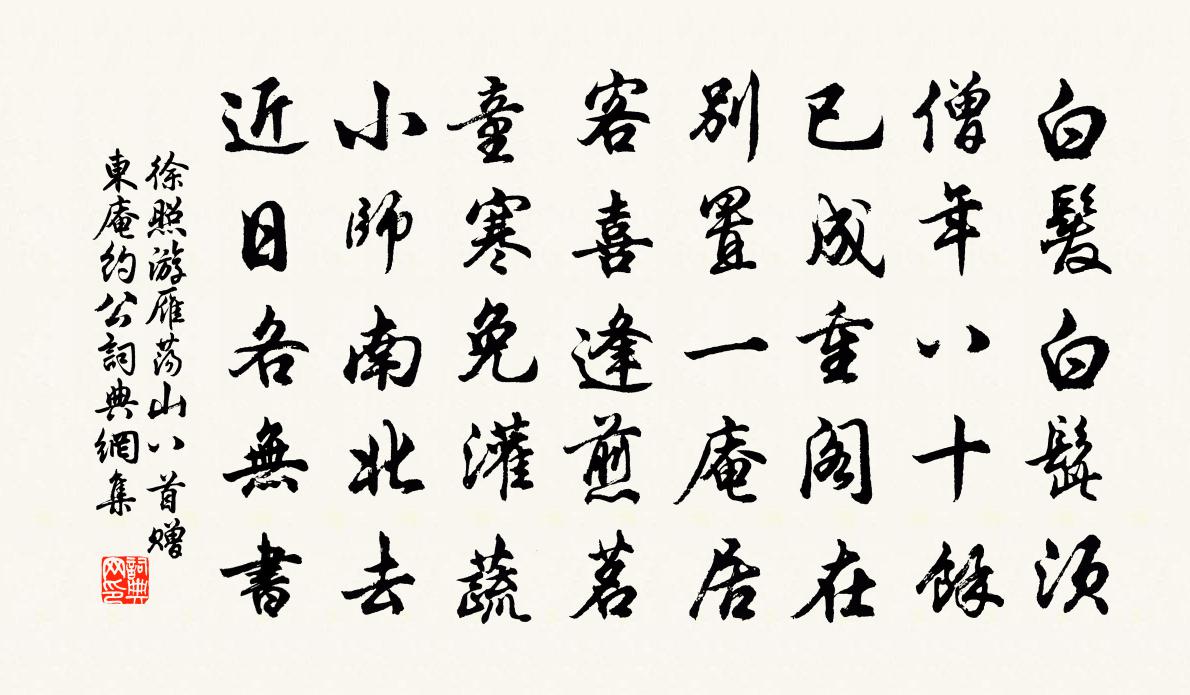 白髮白髭須
僧年八十餘
已成重阁在
別置一庵居
客喜逢煎茗
童寒免灌蔬
小師南北去
近日各無書
徐照游雁荡山八首赠
東庵约公詞典網集
詞典网印